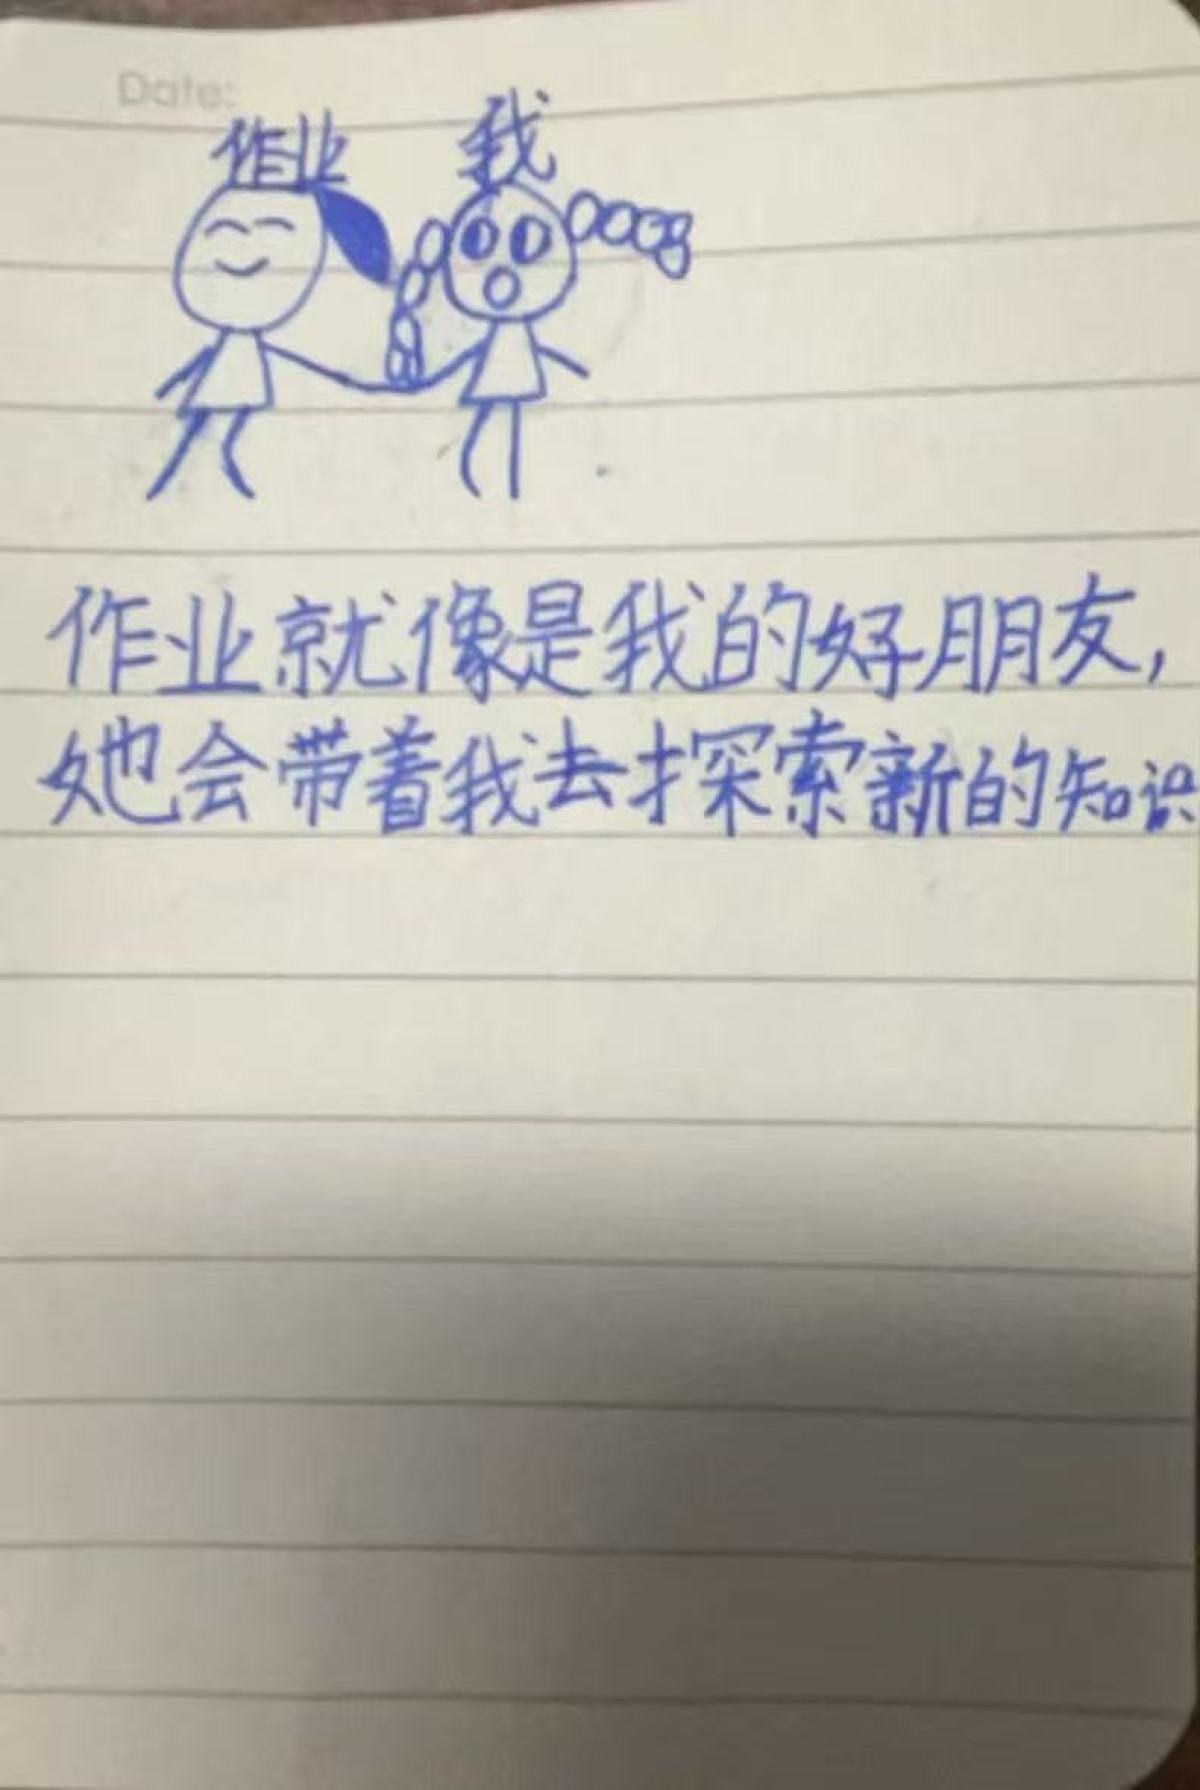 Date:
作业 我
作业就像是我的好朋友,
她会带着我去探索新的知识